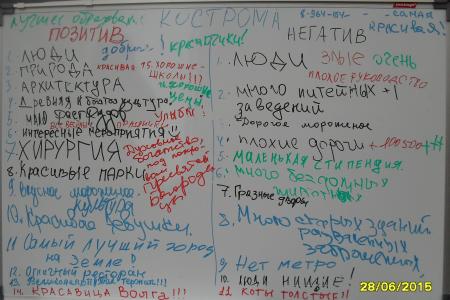 лучшее образован.
КОСТРОМА
8-964-154-
самая
красивая!
ПОЗИТИВ
добрые!
красотчики!
НЕГАТИВ
1. ЛЮДИ
2. ПРИРОДА
красивая
15. ХОРОШИЕ
ШКОЛЫ!!!
3. АРХИТЕКТУРА
хорошие
цены
4. Древняя и богатая культура
5. мало
УЛЫБКИ!
6. интересные мероприятия!!
7. ХИРУРГИЯ
Духовность,
богатство,
под покро-
вом
Пресвятой
Богороди-
цы
8. Красивые парки
9. Вкусное мороженое
культура
10. Красивые девушки.
11 Самый лучший город
на Земле!
12. Отличный ресторан
14. КРАСАВИЦА Волга!!!
1. ЛЮДИ
злые
очень
плохое руководство
2. много питейных +1
заведений
3. Дорогое мороженое
4. плохие дороги
+100500
+#
5. МАЛЕНЬКАЯ СТИПЕНДИЯ.
6. много бездомных
животных
7. Грязные дворы
8. Много старых зданий
развалённых
заброшенных
9. Нет метро
10. ЛЮДИ НИЩИЕ!
11. КОТЫ ТОЛСТЫЕ!
28/06/2015